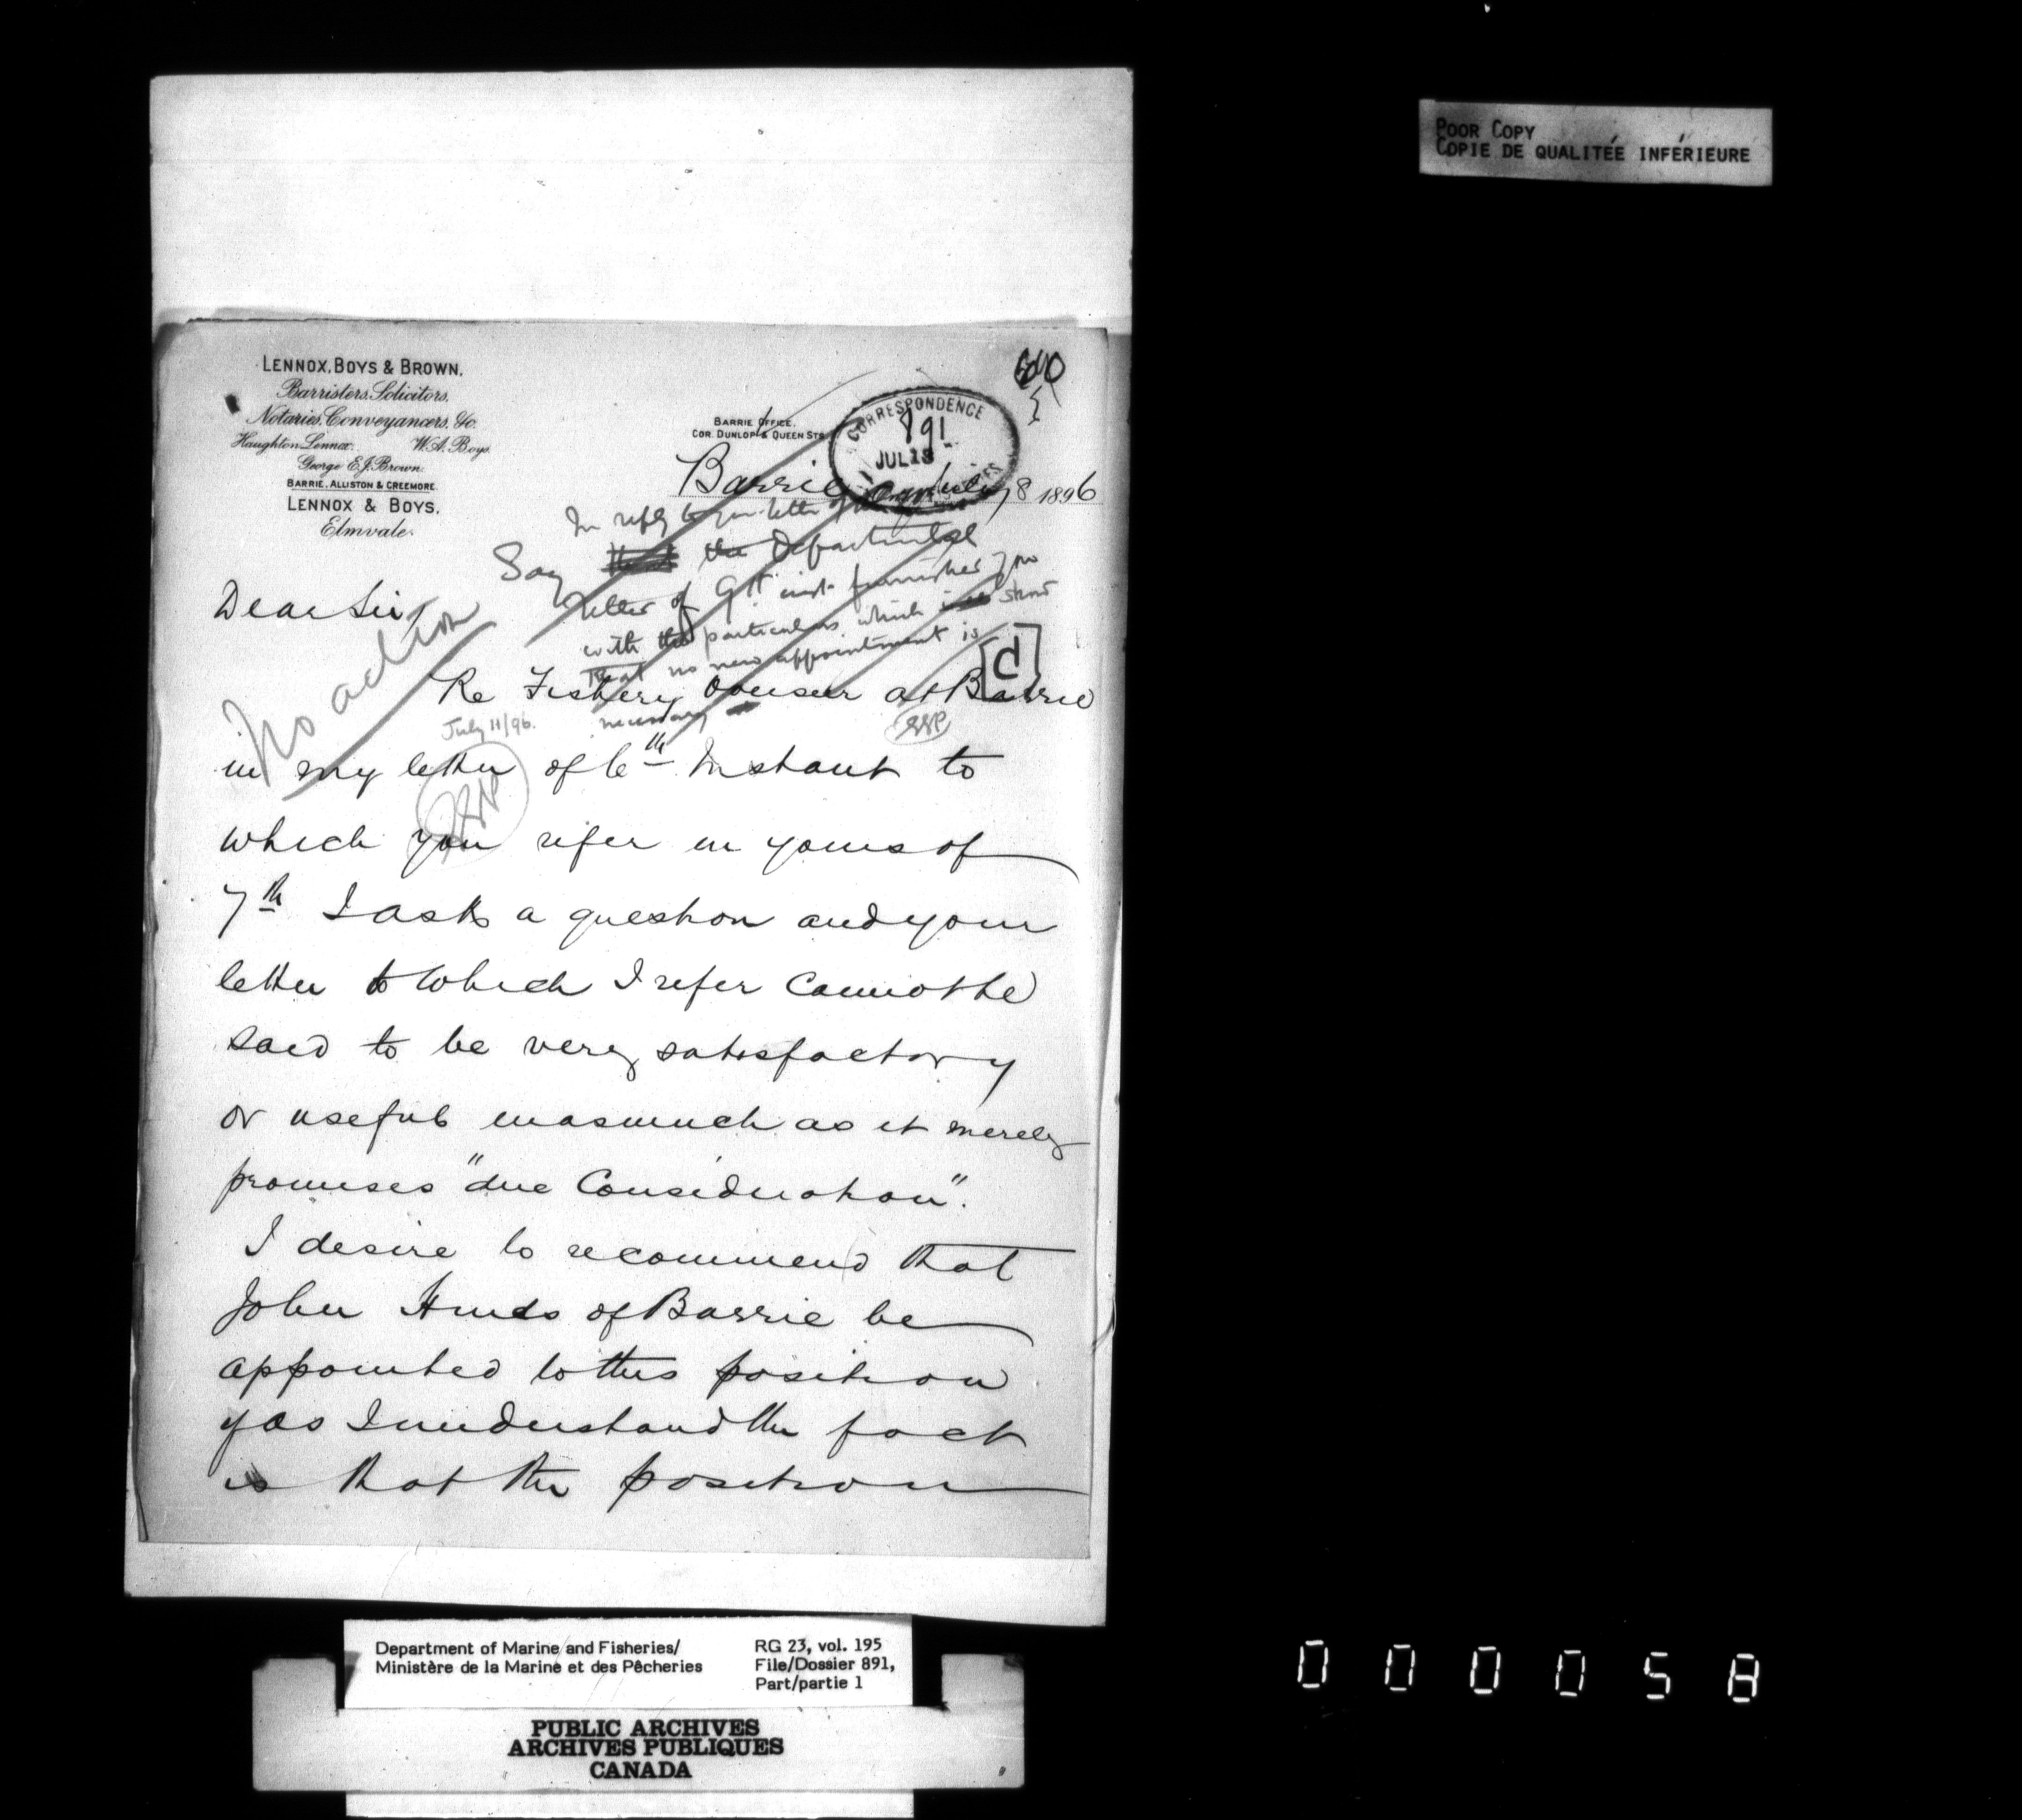 POOR COPY
COPIE DE QUALITÉE INFÉRIEURE
LENNOX, BOYS & BROWN.
Barristers, Solicitors,
Notaries, Conveyancers, &c.
Haughton Lennox. W. A. Boys.
George E. J. Brown.
BARRIE, ALLISTON & CREEMORE
LENNOX & BOYS,
Elmvale.
BARRIE OFFICE,
COR. DUNLOP & QUEEN STS
CORRESPONDENCE
891
JUL 13
Barrie July 8 1896
In reply to your letter of
Say the Departmental
letter of 9th inst furnishes
with the particulars which show
that no new appointment is
necessary
No action
July 11/96.
d
Dear Sir,
Re Fishery Overseer at Barrie
in my letter of 6th Instant to
which you refer in yours of
7th I ask a question and your
letter to which I refer cannot be
said to be very satisfactory
or useful inasmuch as it merely
promises "due Consideration".
I desire to recommend that
John Hinds of Barrie be
appointed to this position
yas I understand the fact
is that the position
Department of Marine and Fisheries/
Ministère de la Marine et des Pêcheries
RG 23, vol. 195
File/Dossier 891,
Part/partie 1
PUBLIC ARCHIVES
ARCHIVES PUBLIQUES
CANADA
000058